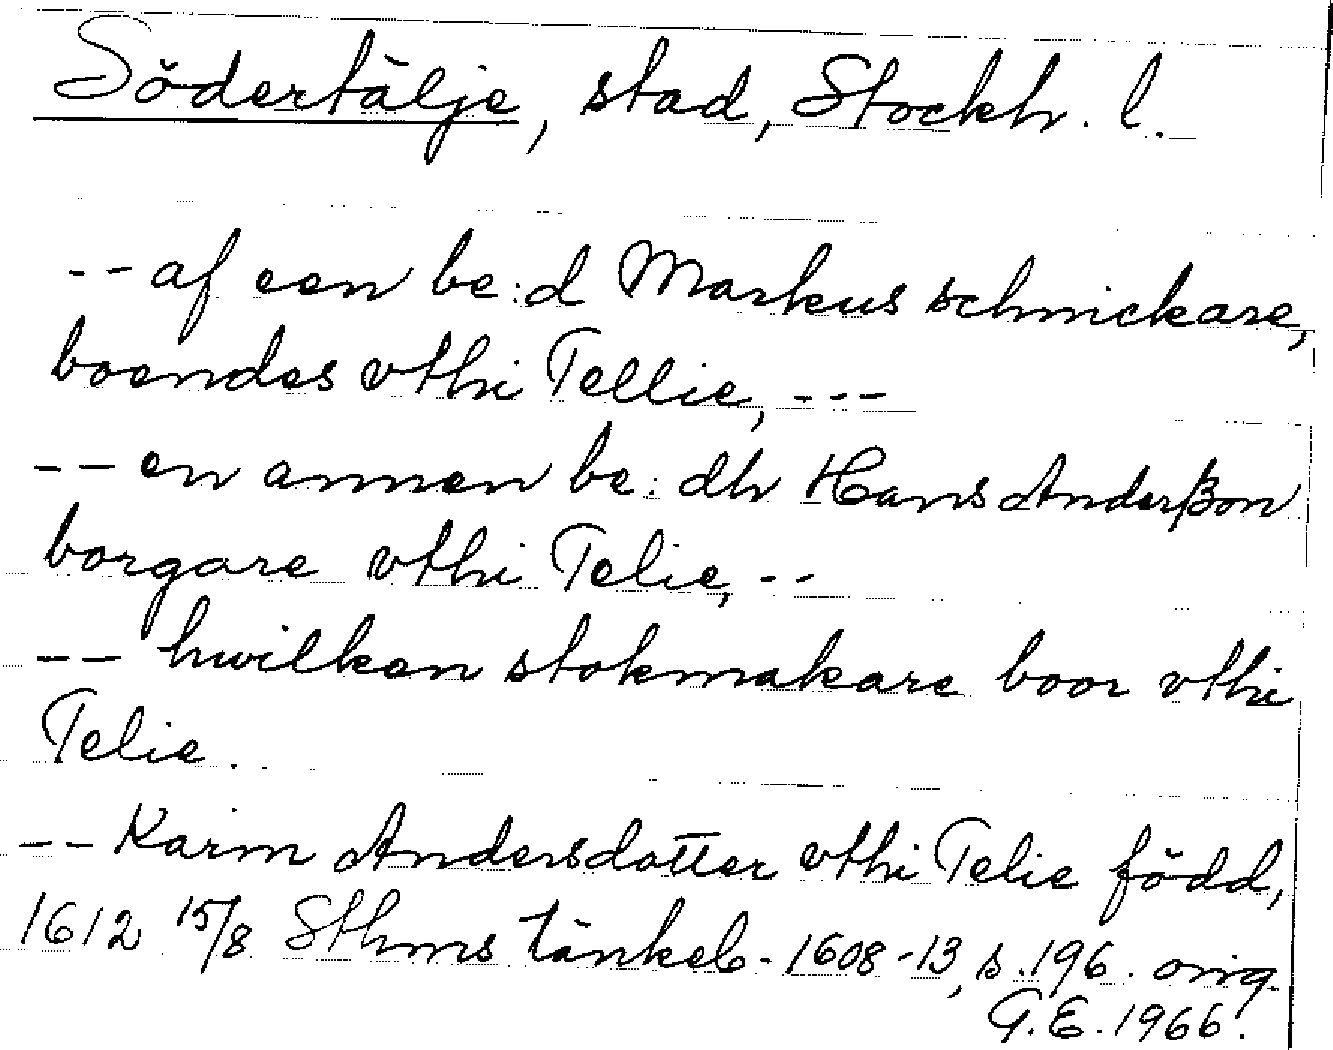 Södertälje, stad, Stockh. l.
-- af een be:d Markus schnickare,
boendes vthi Tellie, ---
-- en annen be: dh Hans Anderßon
borgare vthi Telie, --
-- hwilken stokmakare boor vthi
Telie.
-- Karin Andersdotter vthi Telie född,
1612 15/8 Sthms tänkeb. 1608-13, s. 196. orig.
G.E. 1966.